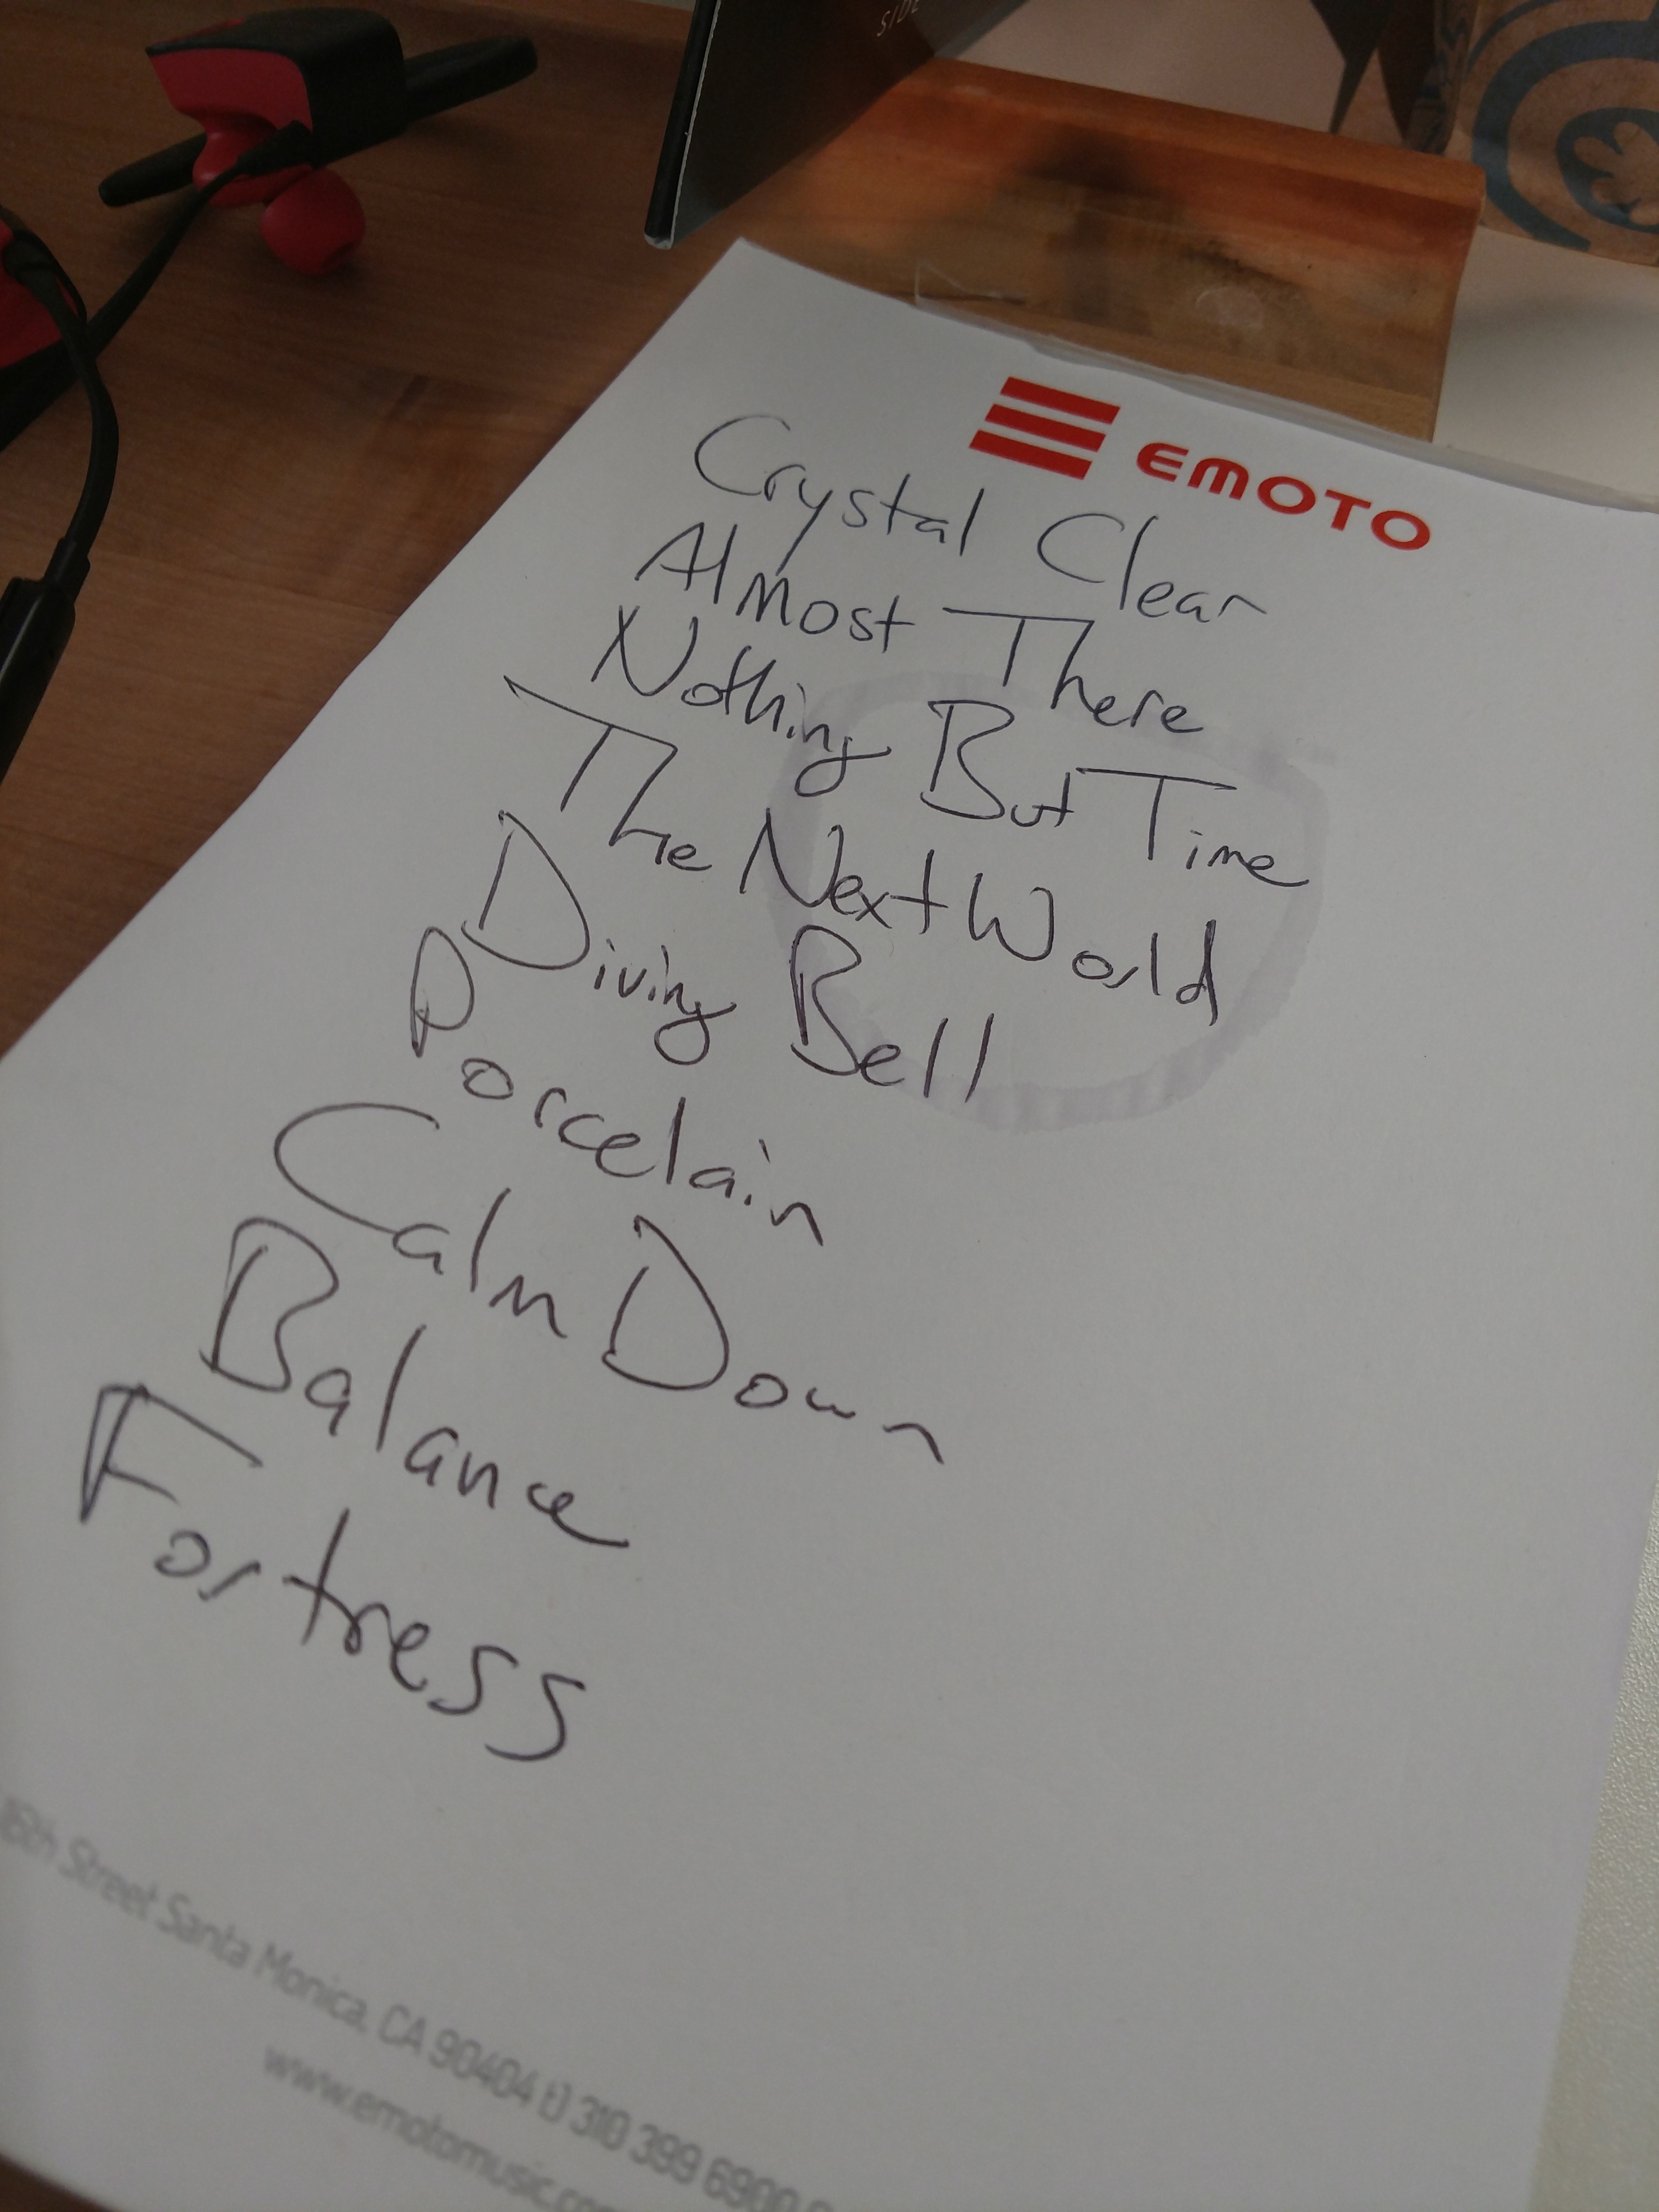 SIDE
EMOTO
Crystal Clear
Almost There
Nothing But Time
The Next World
Diving Bell
Porcelain
Calm Down
Balance
Fortress
16th Street Santa Monica, CA 90404 t) 310 399 6900
www.emotomusic.com